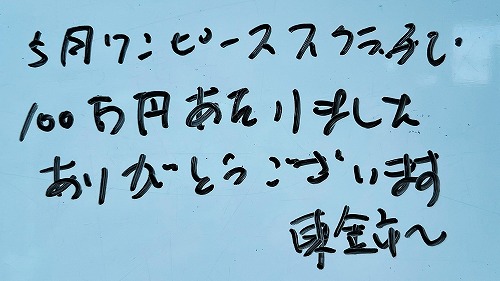 5月ワンピーススクラッチで
100万円あたりました
ありがとうございます
東金市